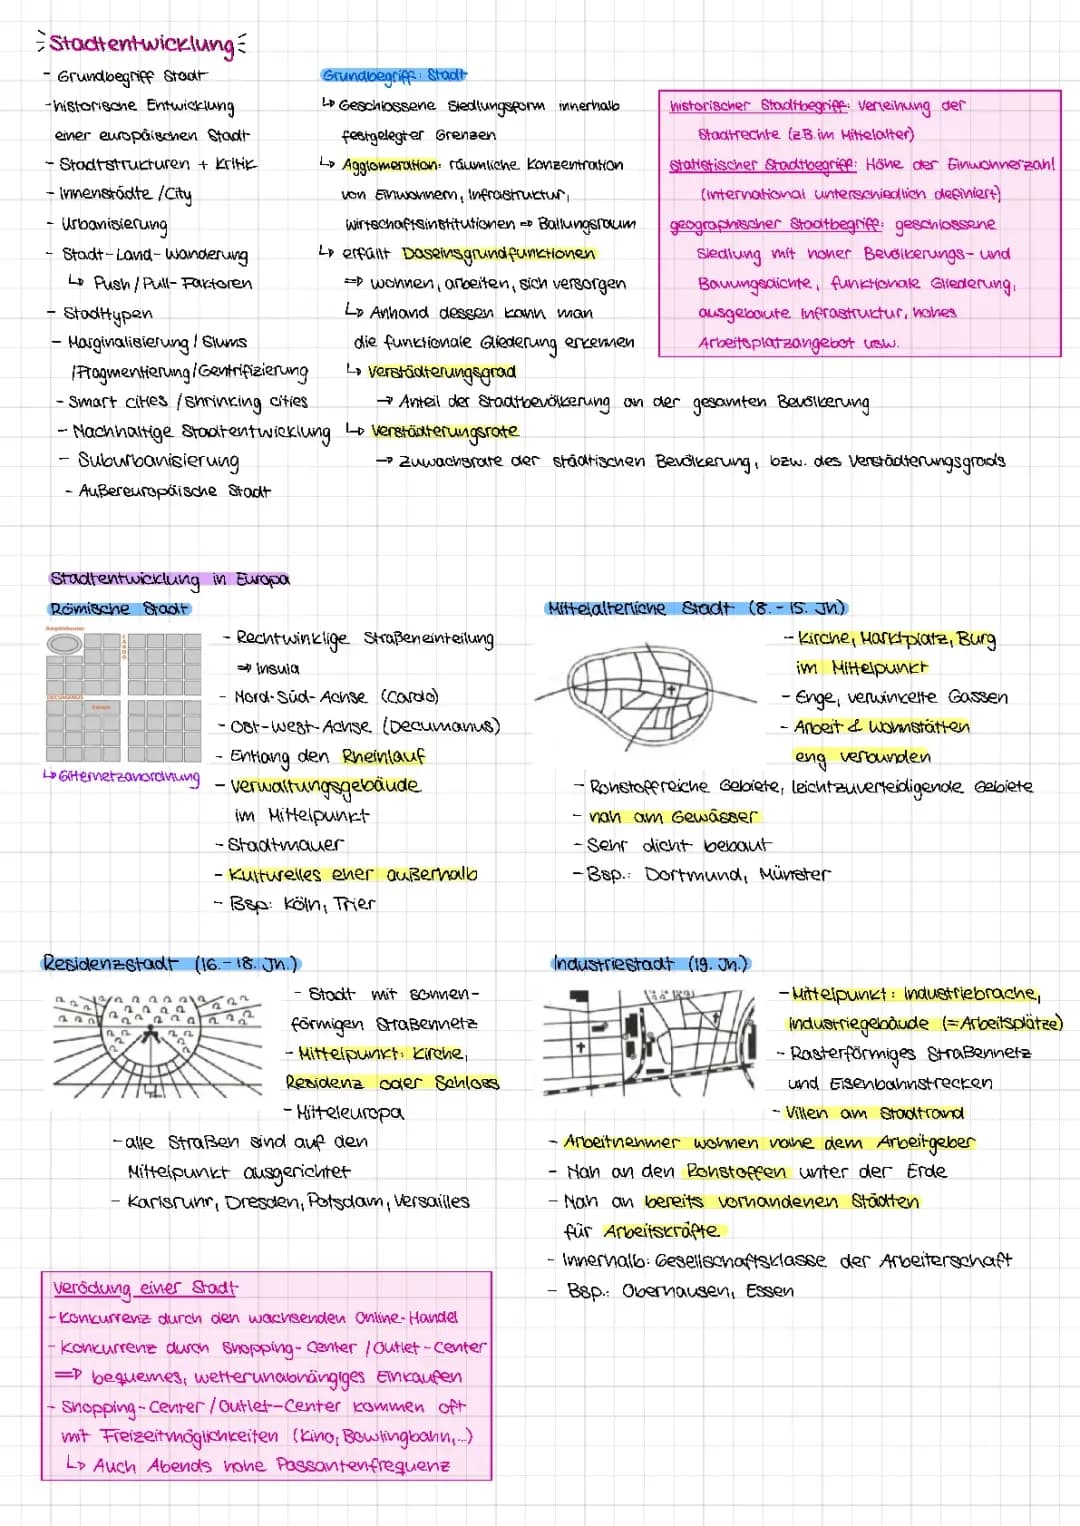 Stadtentwicklung
- Grundbegriff Stadt
- historische Entwicklung
einer europäischen Stadt
- Stadtstrukturen + Kritik
- Innenstädte / City
- Urbanisierung
- Stadt-Land-Wanderung
↳ Push / Pull-Faktoren
- Stadttypen
- Marginalisierung / Slums
/Fragmentierung/Gentrifizierung
- Smart cities / Shrinking cities
- Nachhaltige Stadtentwicklung
- Suburbanisierung
- Außereuropäische Stadt
Grundbegriff: Stadt
↳ Geschlossene Siedlungsform innerhalb
festgelegter Grenzen
↳ Agglomeration: räumliche Konzentration
von Einwohnern, Infrastruktur,
wirtschaftsinstitutionen ⇒ Ballungsraum
↳ erfüllt Daseinsgrundfunktionen
⇒ wohnen, arbeiten, sich versorgen
↳ Anhand dessen kann man
die funktionale Gliederung erkennen
↳ Verstädterungsgrad
→ Anteil der Stadtbevölkerung an der gesamten Bevölkerung
↳ Verstädterungsrate
→ Zuwachsrate der städtischen Bevölkerung, bzw. des Verstädterungsgrads
historischer Stadtbegriff: Verleihung der
Stadtrechte (z.B. im Mittelalter)
statistischer Stadtbegriff: Höhe der Einwohnerzahl
(international unterschiedlich definiert)
geographischer Stadtbegriff: geschlossene
Siedlung mit hoher Bevölkerungs- und
Bauungsdichte, funktionale Gliederung,
ausgebaute Infrastruktur, hohes
Arbeitsplatzangebot usw.
Stadtentwicklung in Europa
Römische Stadt
Amphitheater
CARDO
DECUMANUS
Forum
↳ Gitternetzanordnung
- Rechtwinklige Straßeneinteilung
⇒ Insula
- Nord-Süd-Achse (Cardo)
- Ost-West-Achse (Decumanus)
- Entlang den Rheinlauf
- Verwaltungsgebäude
im Mittelpunkt
- Stadtmauer
- Kulturelles eher außerhalb
- Bsp: Köln, Trier
Mittelalterliche Stadt (8. - 15. Jh.)
- Kirche, Marktplatz, Burg
im Mittelpunkt
- Enge, verwinkelte Gassen
- Arbeit & Wohnstätten
eng verbunden
- Rohstoffreiche Gebiete, leichtzuverteidigende Gebiete
- nah am Gewässer
- Sehr dicht bebaut
- Bsp.: Dortmund, Münster
Residenzstadt (16. - 18. Jh.)
- Stadt mit sonnen-
förmigen Straßennetz
- Mittelpunkt: Kirche,
Residenz oder Schloss
- Mitteleuropa
- alle Straßen sind auf den
Mittelpunkt ausgerichtet
- Karlsruhr, Dresden, Potsdam, Versailles
Industriestadt (19. Jh.)
- Mittelpunkt: Industriebrache,
Industriegebäude (=Arbeitsplätze)
- Rasterförmiges Straßennetz
und Eisenbahnstrecken
- Villen am Stadtrand
- Arbeitnehmer wohnen nahe dem Arbeitgeber
- Nah an den Rohstoffen unter der Erde
- Nah an bereits vorhandenen Städten
für Arbeitskräfte
- Innerhalb: Gesellschaftsklasse der Arbeiterschaft
- Bsp.: Oberhausen, Essen
Verödung einer Stadt
- Konkurrenz durch den wachsenden Online-Handel
- Konkurrenz durch Shopping-Center / Outlet-Center
⇒ bequemes, wetterunabhängiges Einkaufen
- Shopping-Center / Outlet-Center kommen oft
mit Freizeitmöglichkeiten (Kino, Bowlingbahn,...)
↳ Auch Abends hohe Passantenfrequenz